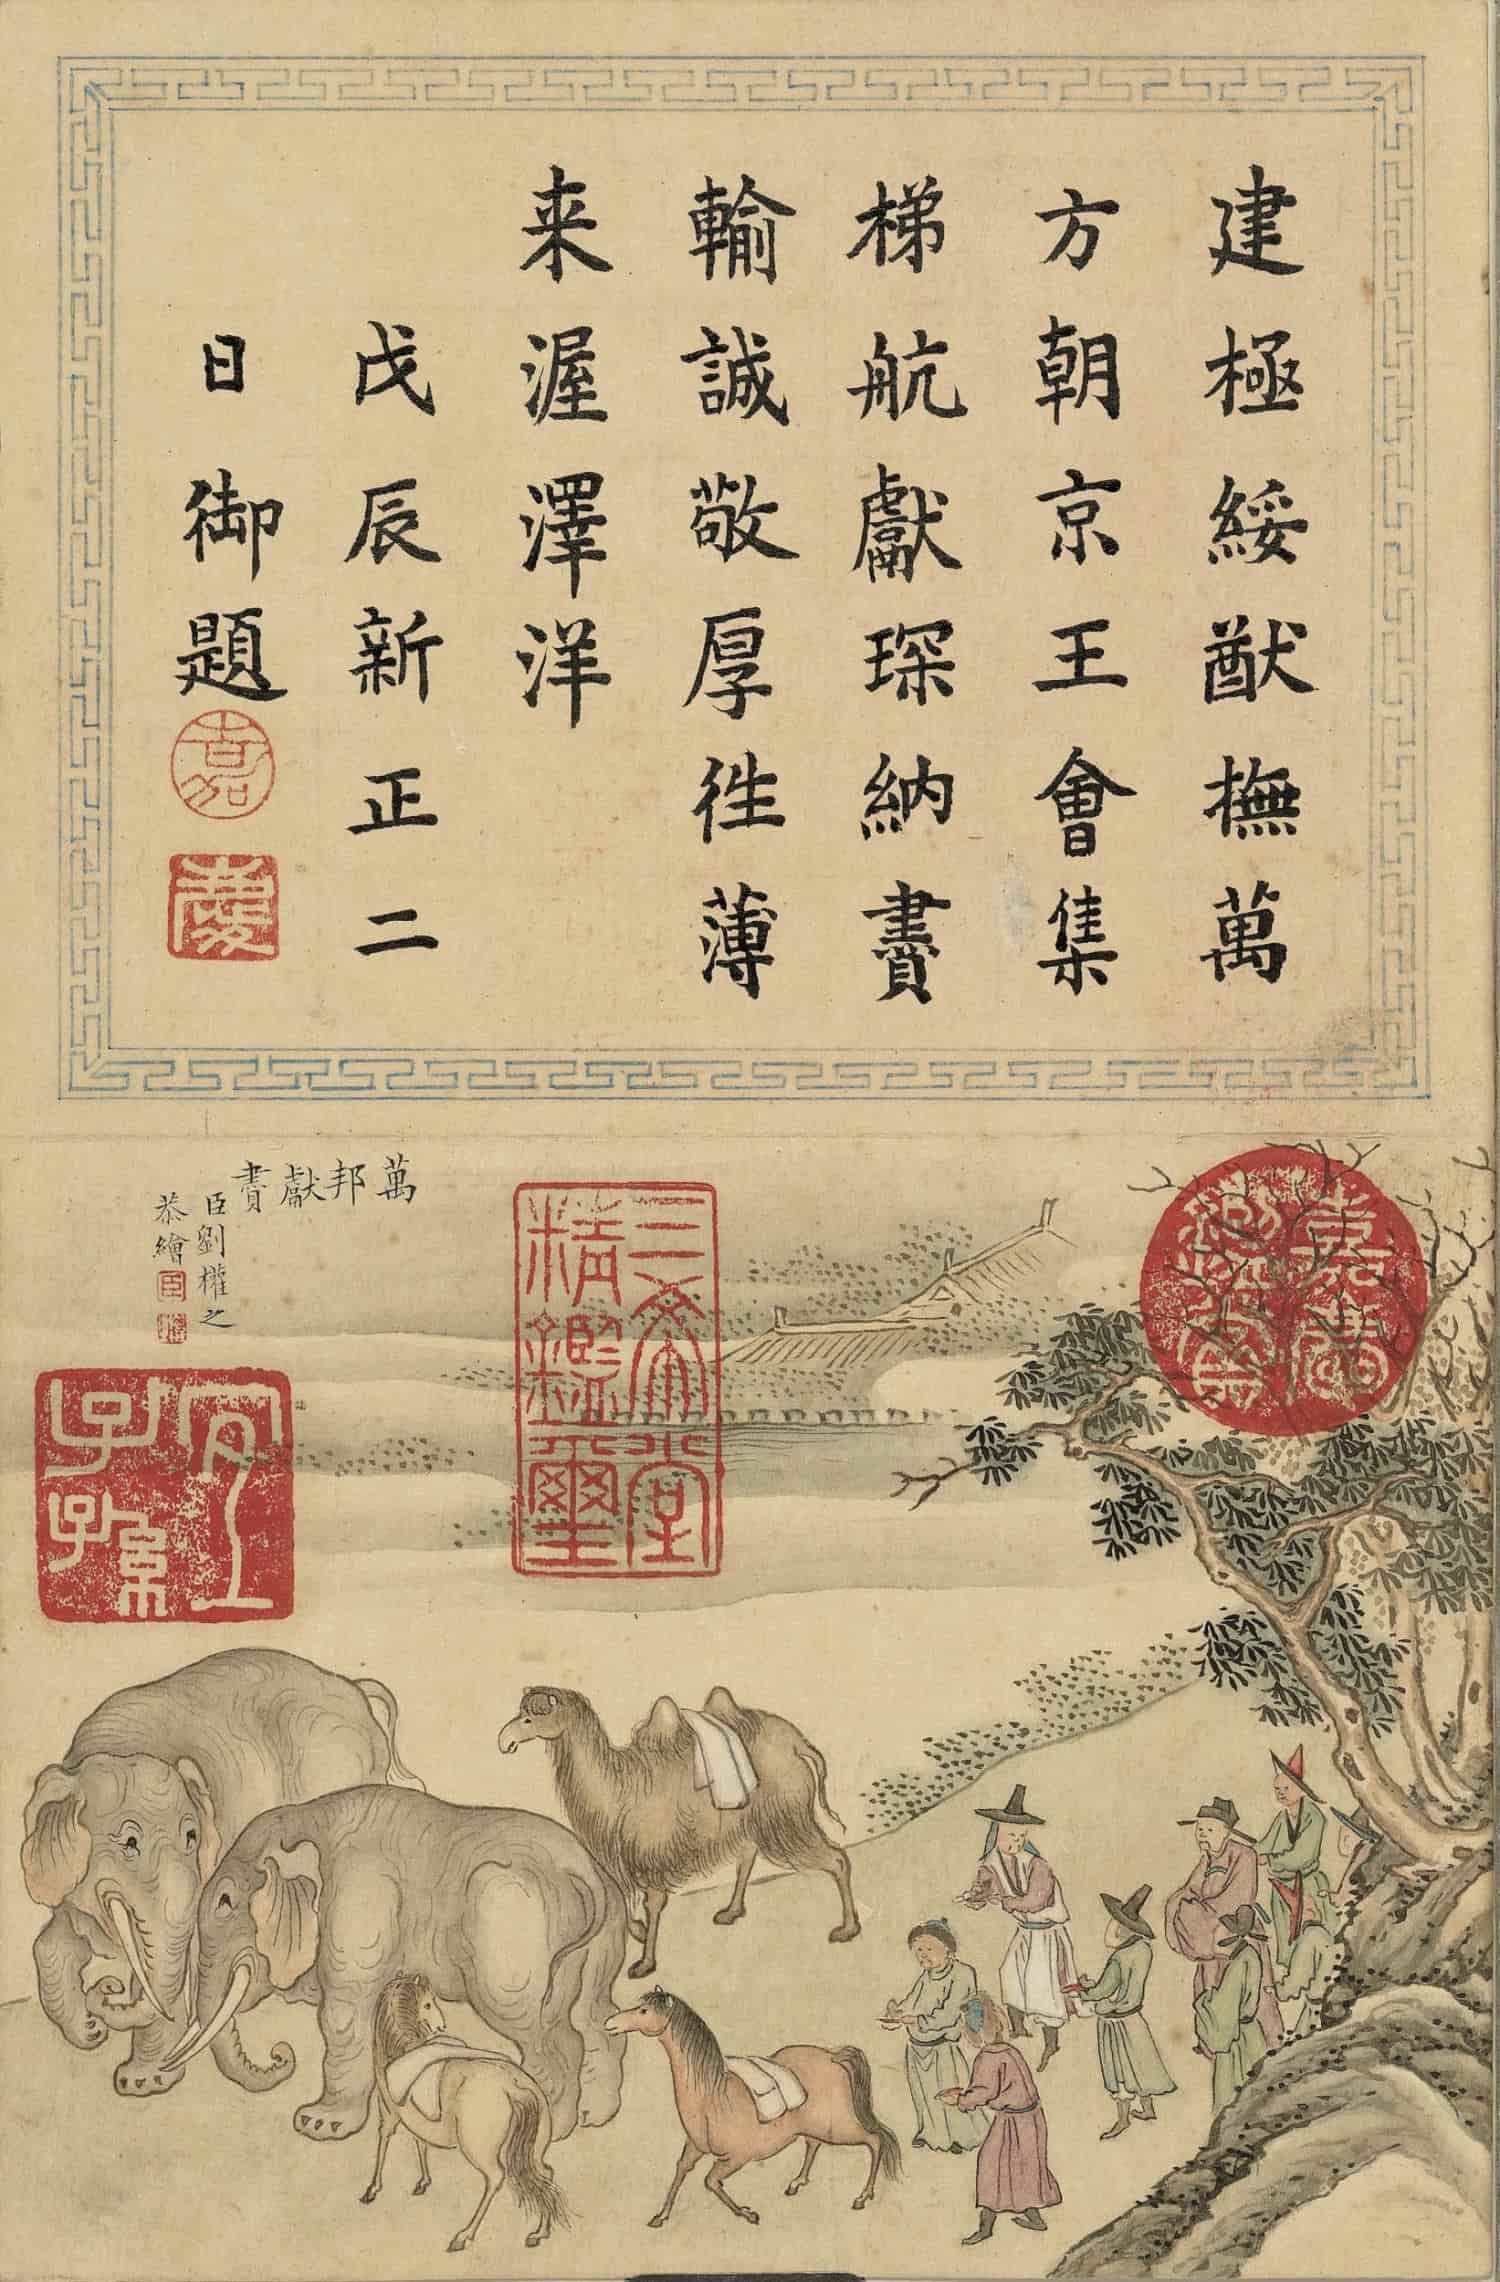 建極綏猷撫萬
方朝京王會集
梯航獻琛納賮
輸誠敬厚徃薄
来渥澤洋
戊辰新正二
日御題
嘉
慶
萬邦獻賮
臣劉權之
恭繪
臣
三希堂
精鑑璽
宜
子孫
嘉慶
鑑賞